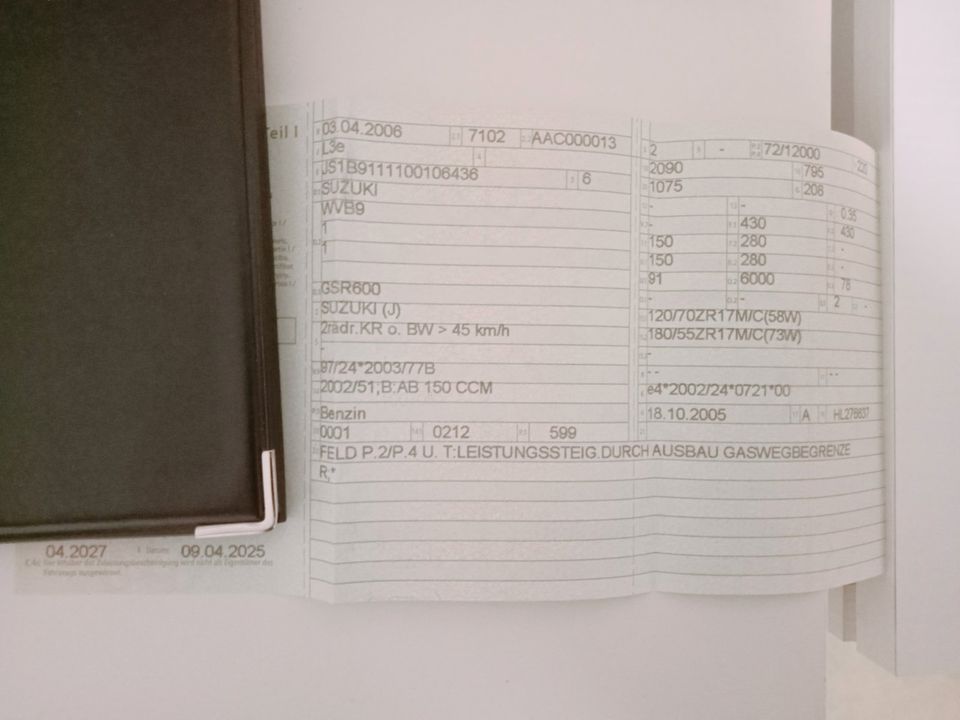 Teil I
03.04.2006 7102 AAC000013
L3e
JS1B9111100106436 6
SUZUKI
WVB9
1
1
GSR600
SUZUKI (J)
2rädr.KR o. BW > 45 km/h
-
97/24*2003/77B
2002/51;B:AB 150 CCM
Benzin
0001 0212 599
FELD P.2/P.4 U. T:LEISTUNGSSTEIG.DURCH AUSBAU GASWEGBEGRENZE
R,*
2 - 72/12000 220
2090 795
1075 208
- - 0.35
- 430 430
150 280 -
150 280 -
91 6000 78
- - 2 -
120/70ZR17M/C(58W)
180/55ZR17M/C(73W)
-
- - - -
e4*2002/24*0721*00
18.10.2005 A HL276637
04.2027 Datum 09.04.2025
C.4c: Der Inhaber der Zulassungsbescheinigung wird nicht als Eigentümer des
Fahrzeugs ausgewiesen.